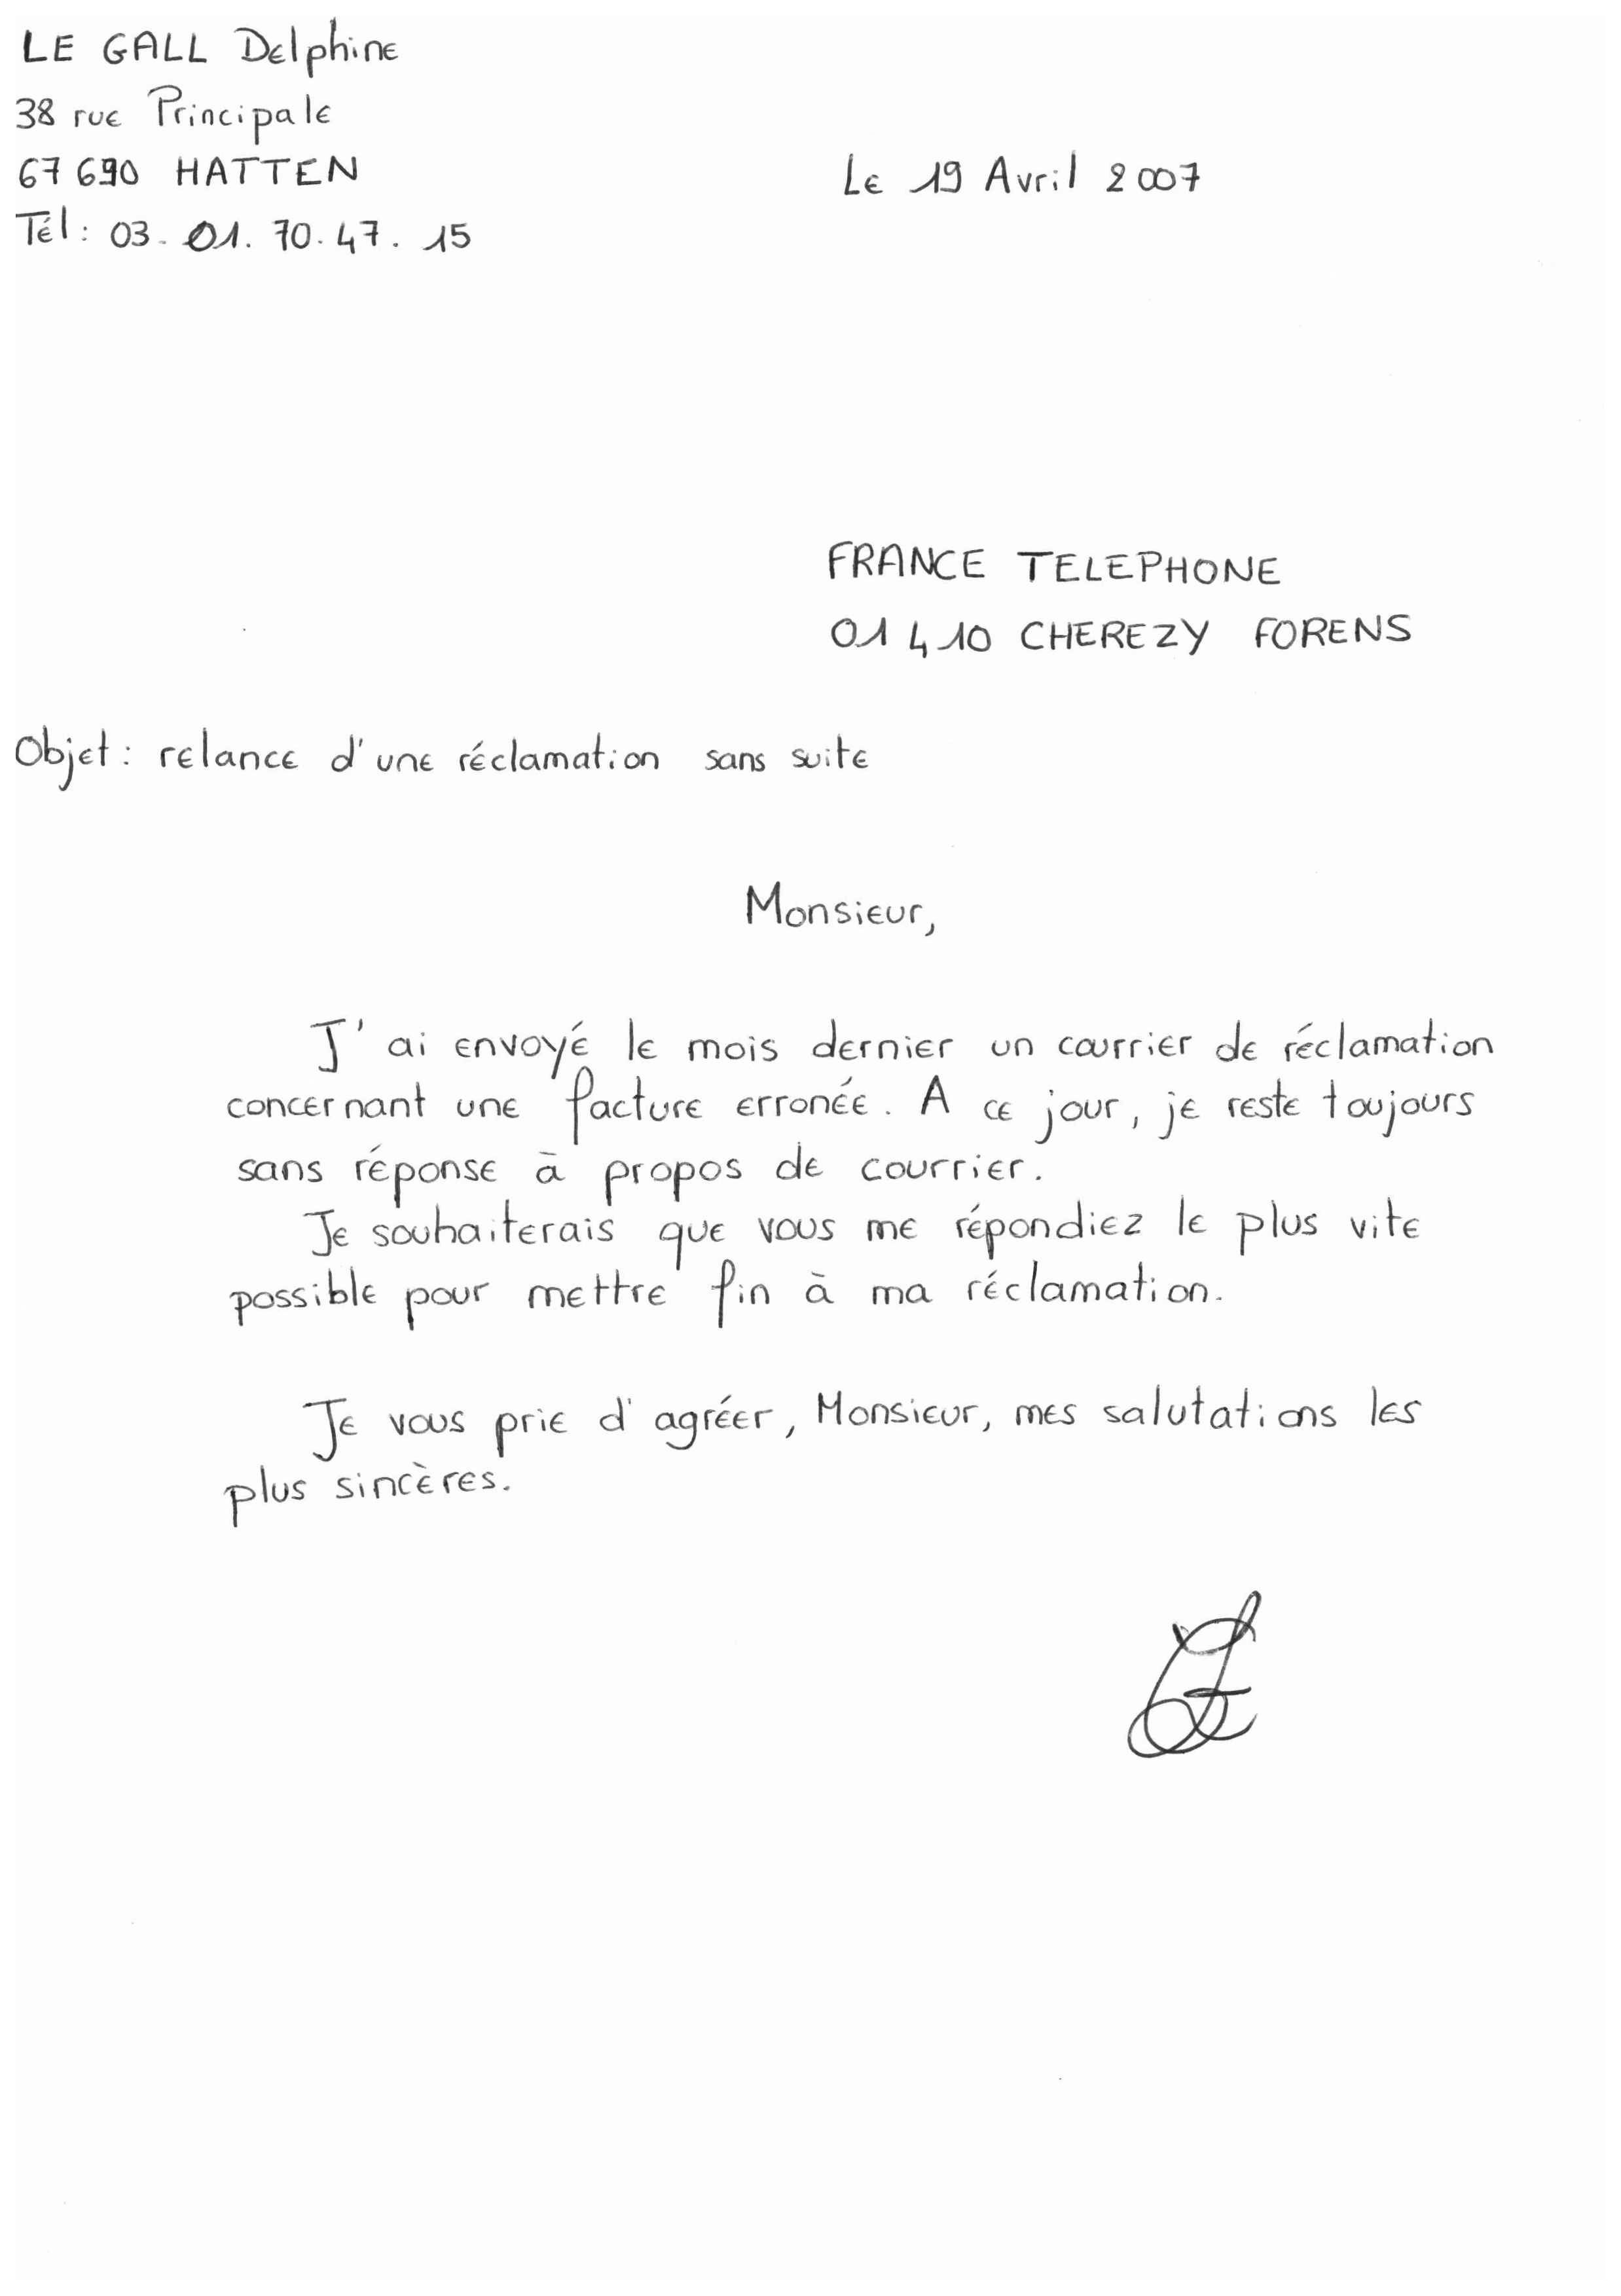 LE GALL Delphine
38 rue Principale
67 690 HATTEN
Le 19 Avril 2007
Tél : 03. 01. 70. 47. 15
FRANCE TELEPHONE
01 410 CHEREZY FORENS
Objet : relance d'une réclamation sans suite
Monsieur,
J'ai envoyé le mois dernier un courrier de réclamation
concernant une facture erronée. A ce jour, je reste toujours
sans réponse à propos de courrier.
Je souhaiterais que vous me répondiez le plus vite
possible pour mettre fin à ma réclamation.
Je vous prie d'agréer, Monsieur, mes salutations les
plus sincères.